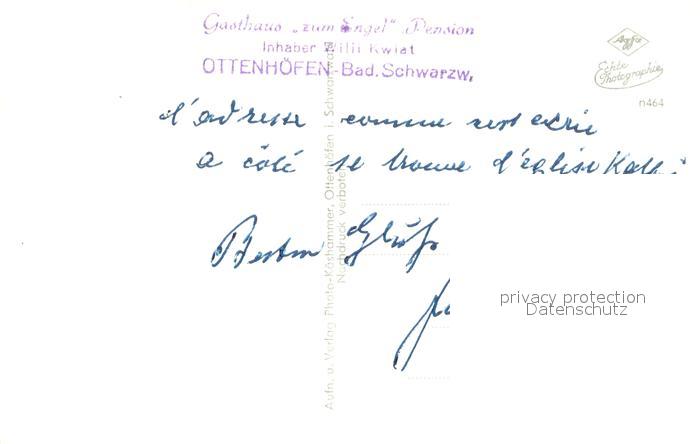 Gasthaus „zum Engel“ Pension
Inhaber Willi Kwiat
OTTENHÖFEN-Bad. Schwarzw.
Agfa
Echte
Photographie
n464
d'adresse comme
a côté se trouve d'église Kath.
Besten
Aufn. u. Verlag Photo-Köshammer, Ottenhöfen i. Schwarzwald
Nachdruck verboten
privacy protection
Datenschutz